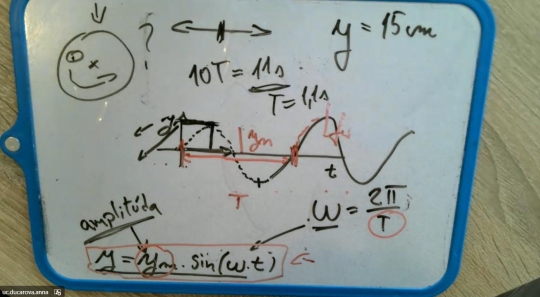 ?
y = 15 cm
10T = 11s
T = 1,1s
y
ym
t
T
ω = 2π/T
amplitúda
y = ym . sin(ω.t)
uc.ducarova.anna